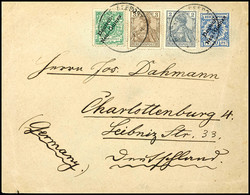 Herrn Jos. Dahmann
Charlottenburg 4.
Leibniz Str. 33.
(Germany)
Deutschland.